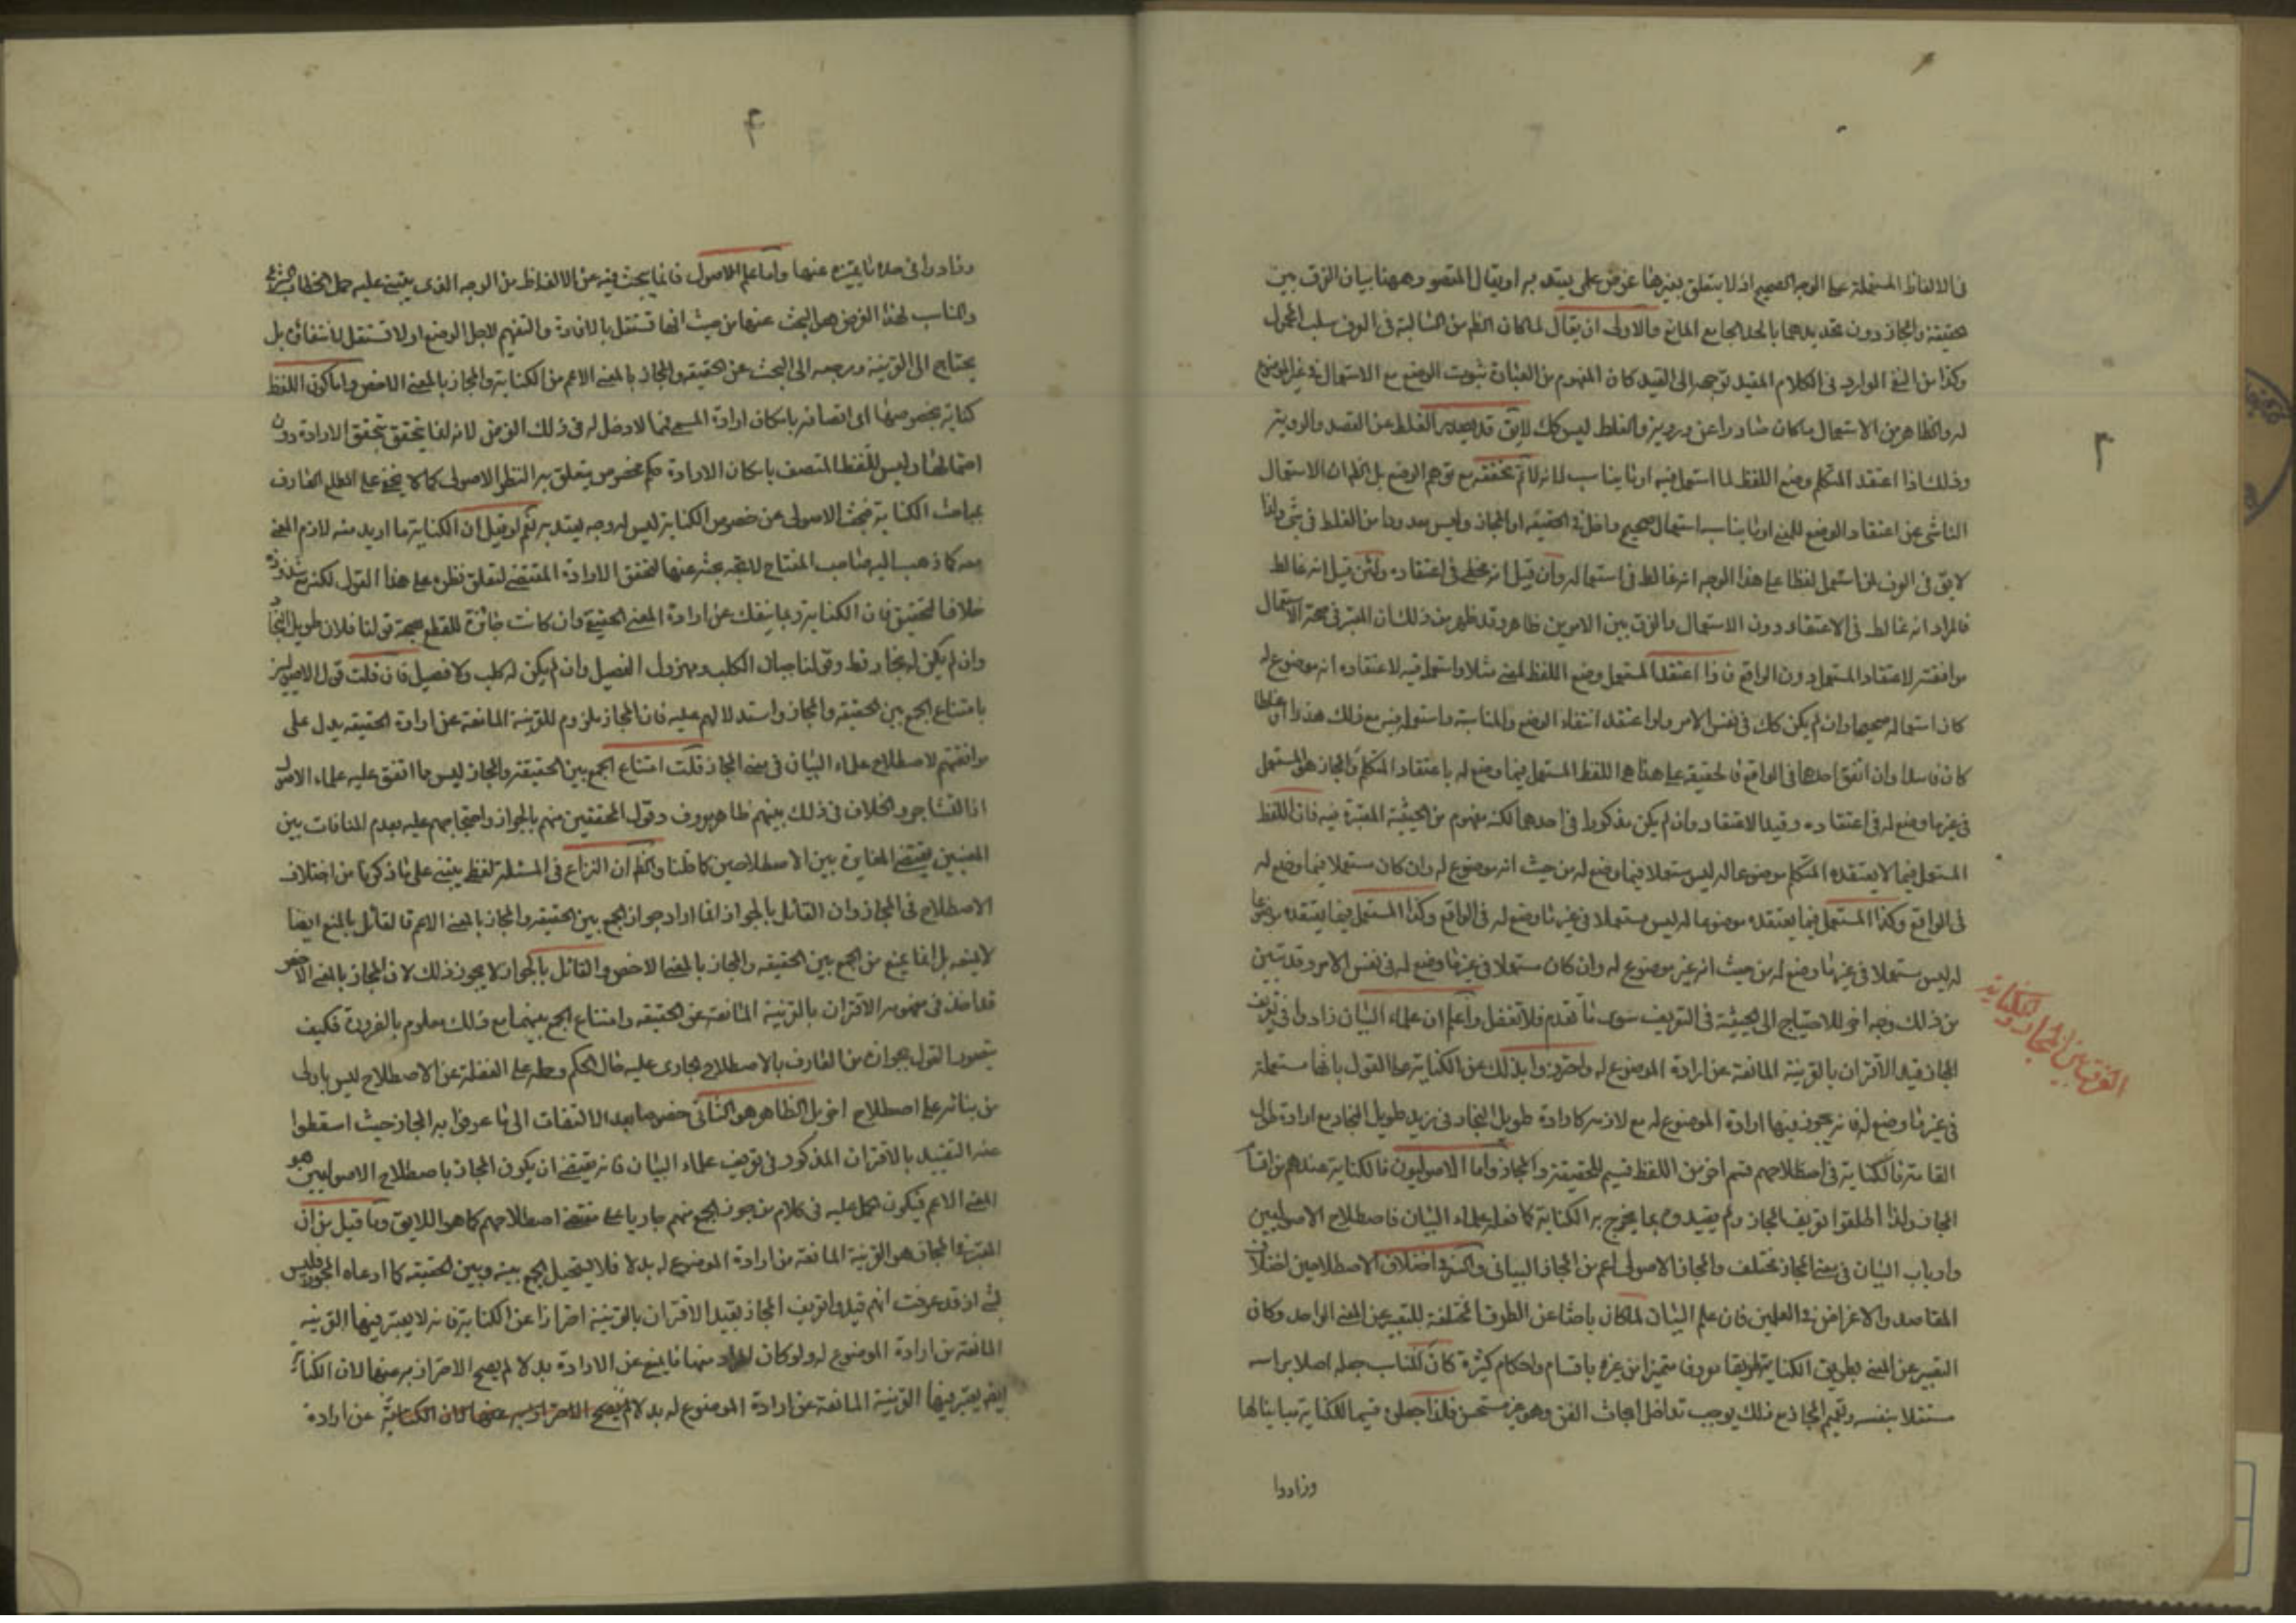 ٣
في الالفاظ المستعملة على الوجه الصحيح اذ لا يتعلق بغيرها غرض علمي يعتد به او يقال المقصود ههنا بيان الفرق بين
الحقيقة والمجاز دون تحديدهما بالحد الجامع المانع والاولى ان يقال لما كان الظ من السالبة في العرف سلب المحمول
وكذا من النفي الوارد في الكلام المقيد توجهه الى القيد كان المفهوم من العبارة ثبوت الوضع مع الاستعمال في غير الموضوع
له والظاهر من الاستعمال ما كان صادرا عن روية والغلط ليس كك لايق قد يصدر الغلط عن القصد والروية
وذلك اذا اعتقد المتكلم وضع اللفظ لما استعمل فيه او ما يناسب لانه لانم تحققه مع توهم الوضع بل الظ ان الاستعمال
الناشي عن اعتقاد الوضع للمعنى او ما يناسبه استعمال صحيح داخل في الحقيقة او المجاز وليس معدودا من الغلط في شئ ولذا
لايق في العرف لمن استعمل لفظا على هذا الوجه انه غالط في استعماله وان قيل انه مخطي في اعتقاده ولئن قيل انه غالط
فالمراد انه غالط في الاعتقاد دون الاستعمال والفرق بين الامرين ظاهر وقد ظهر من ذلك ان المعتبر في صحة الاستعمال
موافقته لاعتقاد المستعمل دون الواقع فاذا اعتقد المستعمل وضع اللفظ لمعنى مثلا واستعمله فيه لاعتقاده انه موضوع له
كان استعماله صحيحا وان لم يكن كك في نفس الامر ولو اعتقد انتفاء الوضع والمناسبة واستعمله فيه مع ذلك هذرا او غلطا
كان فاسدا وان اتفق احدهما في الواقع فالحقيقة على هذا هو اللفظ المستعمل فيما وضع له باعتقاد المتكلم والمجاز هو المستعمل
في غير ما وضع له في اعتقاده وقيد الاعتقاد وان لم يكن مذكورا في احدهما لكنه مفهوم من الحيثية المعتبرة فيه فان اللفظ
المستعمل فيما لا يعتقده المتكلم موضوعا له ليس مستعملا فيما وضع له من حيث انه موضوع له وان كان مستعملا فيما وضع له
في الواقع وكذا المستعمل فيما يعتقده موضوعا له ليس مستعملا في غير ما وضع له في الواقع وكذا المستعمل فيما يعتقده موضوعا
له ليس مستعملا في غير ما وضع له من حيث انه غير موضوع له وان كان مستعملا في غير ما وضع له في نفس الامر وقد تبين
من ذلك وجه اخر للاحتياج الى الحيثية في التعريف سوى ما تقدم فلا تغفل واعلم ان علماء البيان زادوا في تعريف
الفرق بين المجاز والكناية
المجاز قيد الاقتران بالقرينة المانعة عن ارادة الموضوع له واحترزوا بذلك عن الكناية على القول بانها مستعملة
في غير ما وضع له فانه يجوز فيها ارادة الموضوع له مع لازمه كارادة طويل النجاد في زيد طويل النجاد مع ارادة طول
القامة فالكناية في اصطلاحهم قسم اخر من اللفظ قسيم للحقيقة والمجاز واما الاصوليون فالكناية عندهم من اقسام
المجاز ولذا اطلقوا تعريف المجاز ولم يقيدوه بما يخرج به الكناية كما فعله علماء البيان فاصطلاح الاصوليين
وارباب البيان في معنى المجاز مختلف والمجاز الاصولي اعم من المجاز البياني والسر في اختلاف الاصطلاحين اختلاف
المقاصد والاغراض في العلمين فان علم البيان لما كان باحثا عن الطرق المختلفة للتعبير عن المعنى الواحد وكان
التعبير عن المعنى بطريق الكناية طريقا معروفا متميزا عن غيره باقسام واحكام كثيرة كان المناسب جعله اصلا براسه
مستقلا بنفسه وتعميم المجاز مع ذلك يوجب تداخل ابحاث الفن وهو غير مستحسن فلذا جعلوه قسيما للكناية مباينا لها
وزادوا
٤
وزادوا في حده ما يميزه عنها واما علم الاصول فانما يبحث فيه عن الالفاظ من الوجه الذي يبتني عليه حمل الخطاب الشرعي
والمناسب لهذا الغرض هو البحث عنها من حيث انها تستقل بالافادة والتفهيم لاجل الوضع او لا تستقل لانتفائه بل
يحتاج الى القرينة ومرجعه الى البحث عن الحقيقة والمجاز بالمعنى الاعم من الكناية والمجاز بالمعنى الاخص واما كون اللفظ
كناية بخصوصها اي اتصافه بامكان ارادة المسمى فما لا دخل له في ذلك الغرض لانه انما يتحقق بتحقق الارادة دون
احتمالها وليس للفظ المتصف بامكان الارادة حكم مخصوص يتعلق به النظر الاصولي كما لا يخفى على المطلع العارف
بمباحث الكناية فبحث الاصولي عن خصوص الكناية ليس له وجه يعتد به نعم لو قيل ان الكناية ما اريد منه لازم المعنى
معه كما ذهب اليه صاحب المفتاح لاتجه بحثه عنها لتحقق الارادة المقتضي لتعلق نظره على هذا القول لكنه مع شذوذه
خلاف التحقيق فان الكناية ربما ينفك عن ارادة المعنى الحقيقي وان كانت جائزة للقطع بصحة قولنا فلان طويل النجاد
وان لم يكن له نجاد قط وقولنا جبان الكلب ومهزول الفصيل وان لم يكن له كلب ولا فصيل فان قلت قول الاصوليين
بامتناع الجمع بين الحقيقة والمجاز واستدلالهم عليه فان المجاز ملزوم للقرينة المانعة عن ارادة الحقيقة يدل على
موافقتهم لاصطلاح علماء البيان في معنى المجاز قلت امتناع الجمع بين الحقيقة والمجاز ليس مما اتفق عليه علماء الاصول
اذ التشاجر والخلاف في ذلك بينهم ظاهر معروف وقول المحققين منهم بالجواز واحتجاجهم عليه بعدم المنافات بين
المعنيين يقتضي المغايرة بين الاصطلاحين كما قلنا والظ ان النزاع في المسئلة لفظي يبتني على ما ذكرنا من اختلاف
الاصطلاح في المجاز وان القائل بالجواز انما اراد جواز الجمع بين الحقيقة والمجاز بالمعنى الاعم فالقائل بالمنع ايضا
لا يمنعه بل انما يمنع من الجمع بين الحقيقة والمجاز بالمعنى الاخص والقائل بالجواز لا يجوز ذلك لان المجاز بالمعنى الاخص
قد اخذ في مفهومه الاقتران بالقرينة المانعة عن الحقيقة وامتناع الجمع بينهما مع ذلك معلوم بالضرورة فكيف
يتصور القول بجوازه من العارف بالاصطلاح الجاري عليه حال الحكم وحمله على الغفلة عن الاصطلاح ليس باولى
من بنائه على اصطلاح اخر بل الظاهر هو الثاني خصوصا بعد الالتفات الى ما عرفوا به المجاز حيث اسقطوا
عنه التقييد بالاقتران المذكور في تعريف علماء البيان فانه يقتضي ان يكون المجاز باصطلاح الاصوليين هو
المعنى الاعم فيكون الحمل عليه في كلام من جوز الجمع منهم جاريا على مقتضى اصطلاحهم كما هو اللايق وما قيل من ان
المعتبر في المجاز هو القرينة المانعة من ارادة الموضوع له بدلا فلا يستحيل الجمع بينه وبين الحقيقة كما ادعاه المجوز فليس
بشئ اذ قد عرفت انهم قيدوا تعريف المجاز بقيد الاقتران بالقرينة احترازا عن الكناية فانه لا يعتبر فيها القرينة
المانعة من ارادة الموضوع له ولو كان المراد منها ما يمنع عن الارادة بدلا لم يصح الاحتراز به عنها لان الكناية
ايضا يعتبر فيها القرينة المانعة عن ارادة الموضوع له بدلا لم يصح الاحتراز به عنها لان الكناية عن ارادة